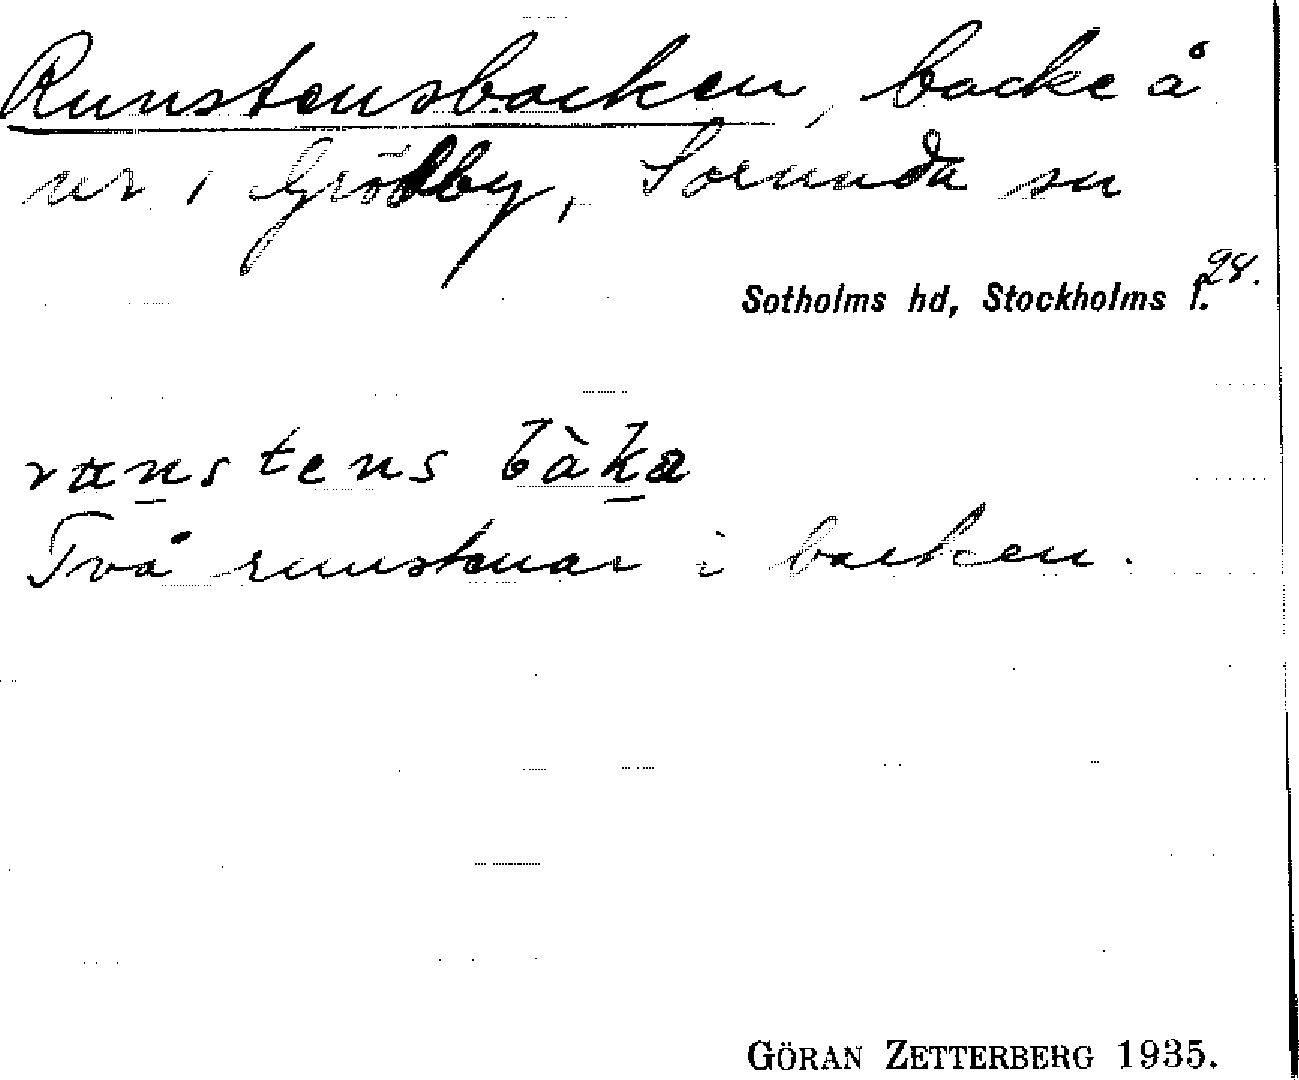 Runstensbacken, backe å
nr 1 Grödby, Sorunda sn
28.
Sotholms hd, Stockholms l.
runstens bàka
Två runstenar i backen.
GÖRAN ZETTERBERG 1935.